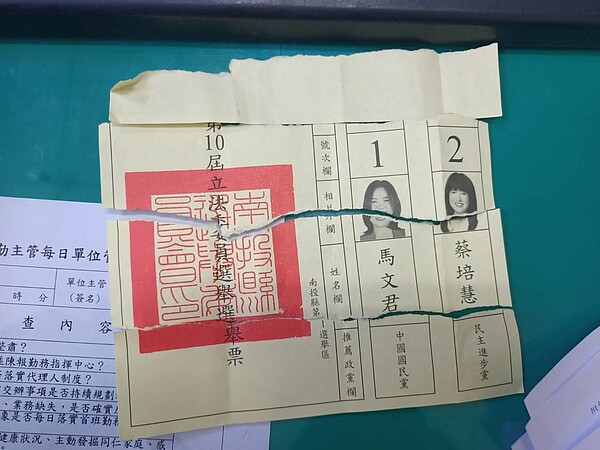 第10屆立法委員選舉選舉票
南投縣選舉委員會印
南投縣第1選舉區
號次欄
相片欄
姓名欄
推薦政黨欄
1
馬文君
中國國民黨
2
蔡培慧
民主進步黨
勤主管每日單位
單位主管
(簽名)
時 分
查 內 容
整肅？
陳報勤務指揮中心？
落實代理人制度？
交辦事項是否持續規劃
、業務缺失，是否確實
象是否每日落實首班勤務
健康狀況、主動發掘同仁家庭、感